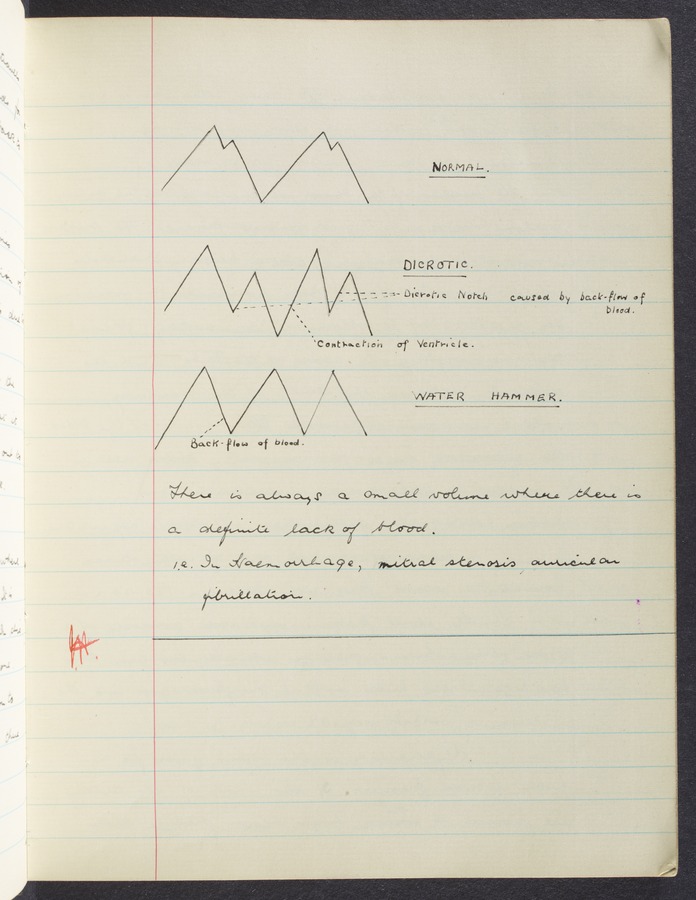 NORMAL.
DICROTIC.
Dicrotic Notch caused by back-flow of
blood.
Contraction of Ventricle.
WATER HAMMER.
Back-flow of blood.
There is always a small volume where there is
a definite lack of blood.
i.e. In Haemorrhage, mitral stenosis auricular
fibrillation.